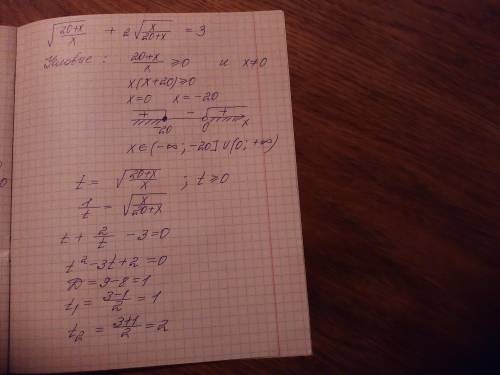 √((20+x)/x) + 2√(x/(20+x)) = 3
Условие: (20+x)/x ≥ 0 и x≠0
x(x+20)≥0
x=0 x=-20
+ - +
-20 0 x
x∈(-∞; -20]∪(0; +∞)
t = √((20+x)/x) ; t≥0
1/t = √(x/(20+x))
t + 2/t - 3=0
t² - 3t + 2 = 0
D = 9-8=1
t₁ = (3-1)/2 = 1
t₂ = (3+1)/2 = 2